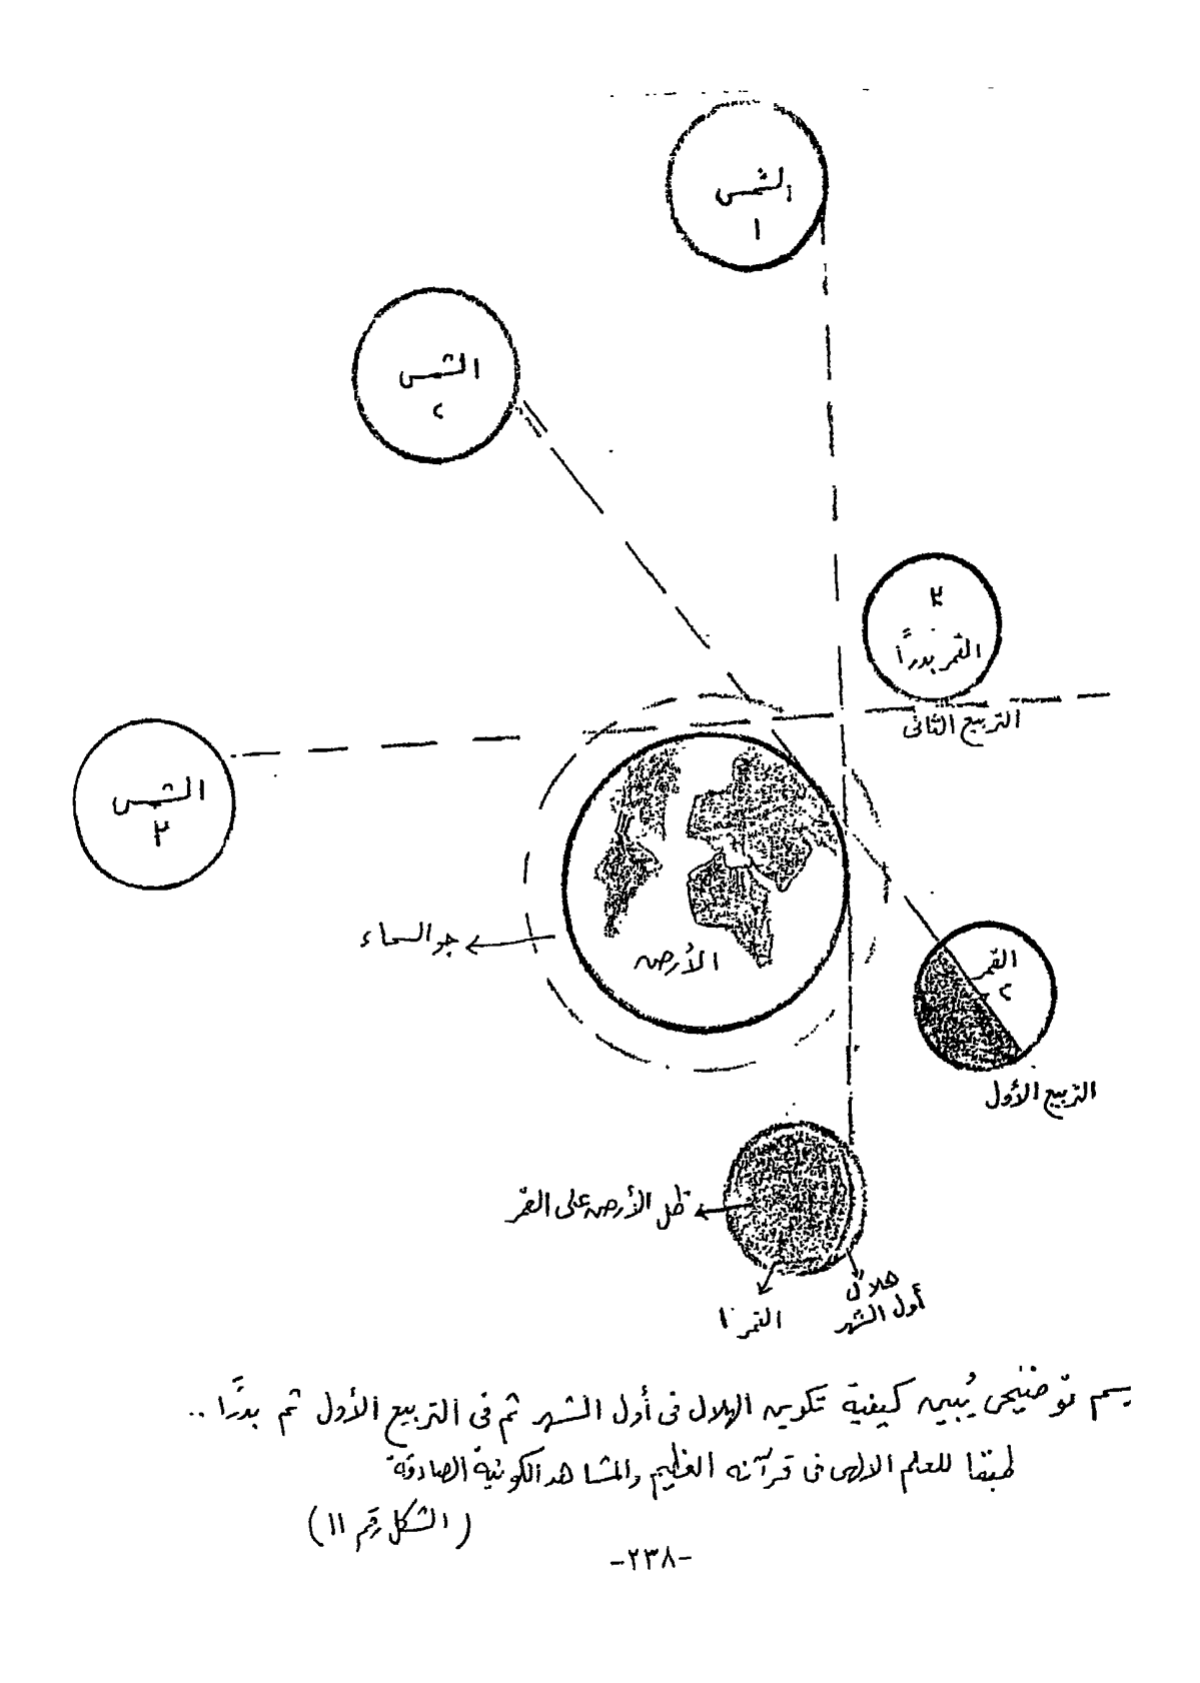 الشمس
١
الشمس
٢
٣
القمر بدراً
التربيع الثانى
الشمس
٣
جو السماء
الأرض
القمر
٢
التربيع الأول
ظل الأرض على القمر
هلال
أول الشهر
القمر ١
رسم توضيحى يُبين كيفية تكوين الهلال فى أول الشهر ثم فى التربيع الأول ثم بدرًا ..
طبقا للعلم الالهى فى قرآنه العظيم والمشاهد الكونية الصادقة
( الشكل رقم ١١ )
-٢٣٨-